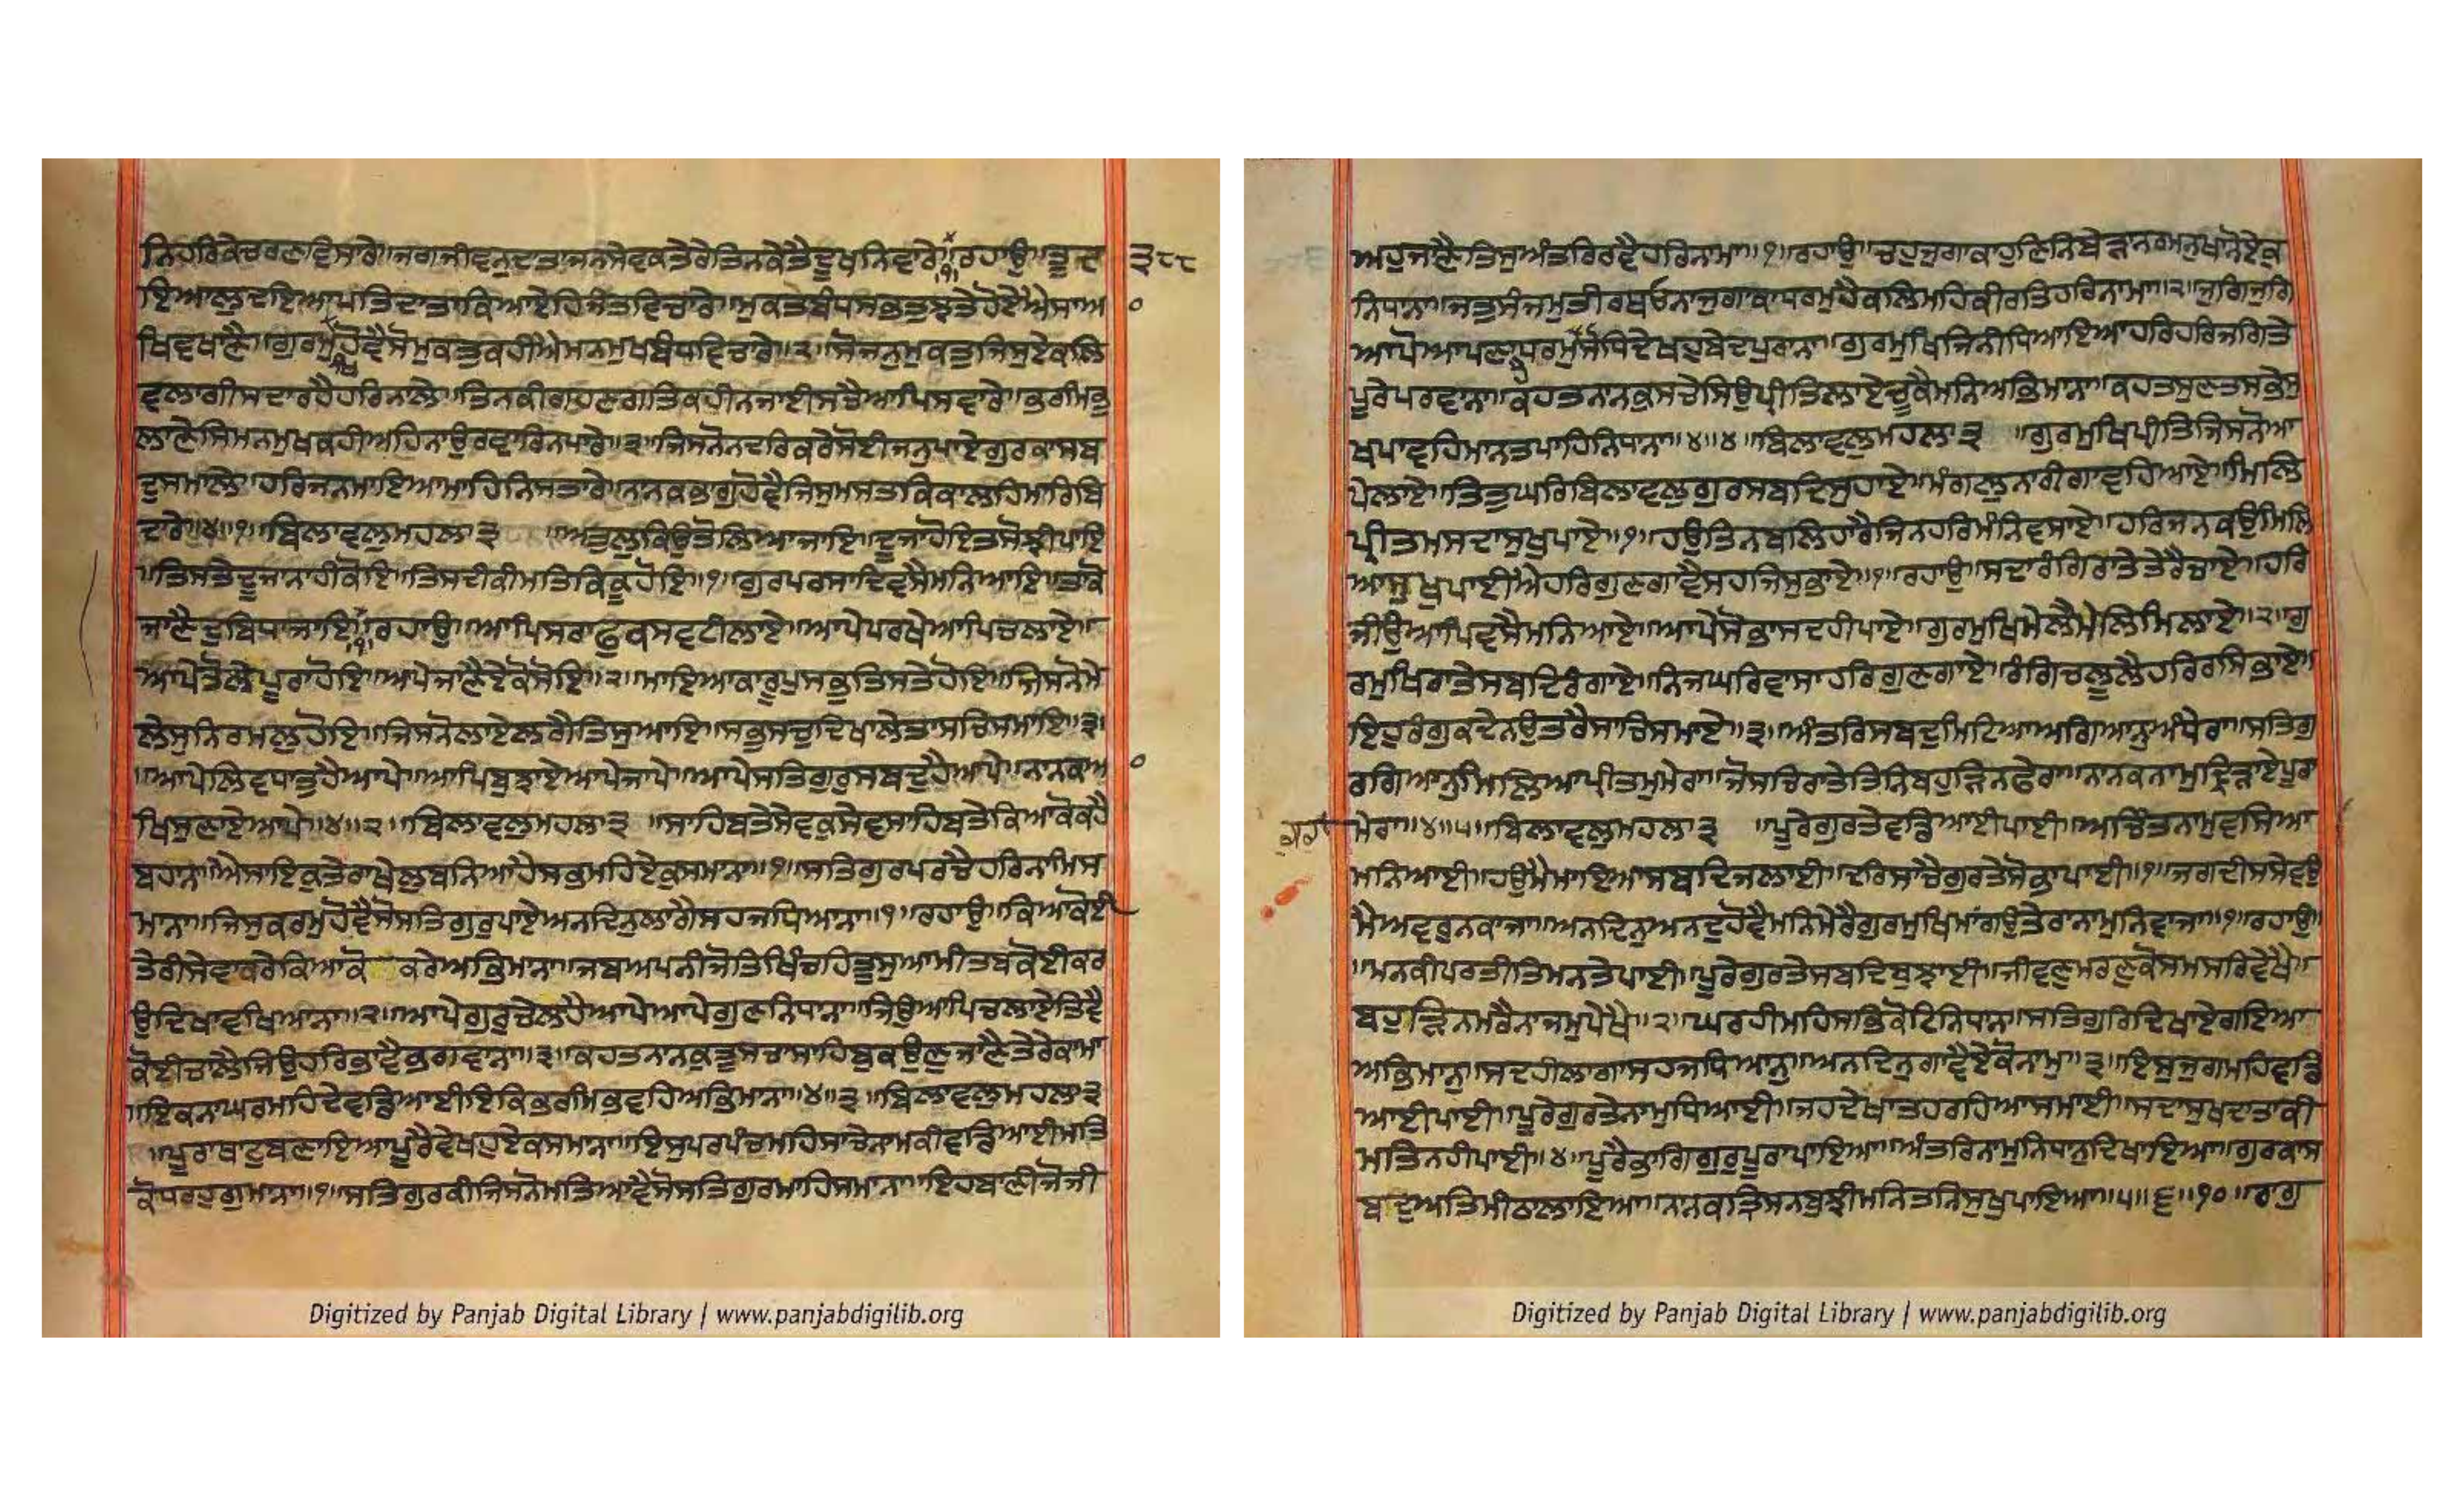 ਨਿਹਰਿਕੇਚਰਣਵਿਸਾਰੇ॥ਜਗਜੀਵਨਦਾਤਾਜਨਸੇਵਕਤੇਰੇਤਿਨਕੇਤੈਦੂਖਨਿਵਾਰੇ॥੧॥ਰਹਾਉ॥ਤੂਦ ੩੮੮
ਇਆਲੁਦਇਆਪਤਿਦਾਤਾਕਿਆਏਹਿਜੰਤਵਿਚਾਰੇ॥ਮੁਕਤਬੰਧਸਭਤੁਝਤੇਹੋਏਐਸਾਆ
ਖਿਵਖਾਣੈ॥ਗੁਰਮੁਖਿਹੋਵੈਸੋਮੁਕਤੁਕਹੀਐਮਨਮੁਖਬੰਧਵਿਚਾਰੇ॥੨॥ਸੋਜਨੁਮੁਕਤੁਜਿਸੁਏਕਲਿ
ਵਲਾਗੀਸਦਾਰਹੈਹਰਿਨਾਲੇ॥ਤਿਨਕੀਗਹਣਗਤਿਕਹੀਨਜਾਈਸਚੈਆਪਿਸਵਾਰੇ॥ਭਰਮਿਭੁ
ਲਾਣੇਸਿਮਨਮੁਖਕਹੀਅਹਿਨਾਉਰਵਾਰਿਨਪਾਰੇ॥੩॥ਜਿਸਨੋਨਦਰਿਕਰੇਸੋਈਜਨੁਪਾਏਗੁਰਕਾਸਬ
ਦੁਸਮਾਲੇ॥ਹਰਿਜਨਮਾਇਆਮਾਹਿਨਿਸਤਾਰੇ॥ਨਾਨਕਭਾਗੁਹੋਵੈਜਿਸੁਮਸਤਕਿਕਾਲਹਿਮਾਰਿਬਿ
ਦਾਰੇ॥੪॥੧॥ਬਿਲਾਵਲੁਮਹਲਾ੩ ॥ਅਤੁਲੁਕਿਉਤੋਲਿਆਜਾਇ॥ਦੂਜਾਹੋਇਤਸੋਝੀਪਾਇ
॥ਤਿਸਤੇਦੂਜਾਨਾਹੀਕੋਇ॥ਤਿਸਦੀਕੀਮਤਿਕਿਕੂਹੋਇ॥੧॥ਗੁਰਪਰਸਾਦਿਵਸੈਮਨਿਆਇ॥ਤਾਕੋ
ਜਾਣੈਦੁਬਿਧਾਜਾਇ॥੧॥ਰਹਾਉ॥ਆਪਿਸਰਾਫੁਕਸਵਟੀਲਾਏ॥ਆਪੇਪਰਖੇਆਪਿਚਲਾਏ॥
ਆਪੇਤੋਲੇਪੂਰਾਹੋਇ॥ਆਪੇਜਾਣੈਏਕੋਸੋਇ॥੨॥ਮਾਇਆਕਾਰੂਪੁਸਭੁਤਿਸਤੇਹੋਇ॥ਜਿਸਨੋਮੇ
ਲੇਸੁਨਿਰਮਲੁਹੋਇ॥ਜਿਸਨੋਲਾਏਲਗੈਤਿਸੁਆਇ॥ਸਭੁਸਚੁਦਿਖਾਲੇਤਾਸਚਿਸਮਾਇ॥੩॥
॥ਆਪੇਲਿਵਧਾਤੁਹੈਆਪੇ॥ਆਪਿਬੁਝਾਏਆਪੇਜਾਪੇ॥ਆਪੇਸਤਿਗੁਰੁਸਬਦੁਹੈਆਪੇ॥ਨਾਨਕਆ
ਖਿਸੁਣਾਏਆਪੇ॥੪॥੨॥ਬਿਲਾਵਲੁਮਹਲਾ੩ ॥ਸਾਹਿਬਤੇਸੇਵਕੁਸੇਵਸਾਹਿਬਤੇਕਿਆਕੋਕਹੈ
ਬਹਾਨਾ॥ਐਸਾਇਕੁਤੇਰਾਖੇਲੁਬਨਿਆਹੈਸਭਮਹਿਏਕੁਸਮਾਨਾ॥੧॥ਸਤਿਗੁਰਪਰਚੈਹਰਿਨਾਮਿਸ
ਮਾਨਾ॥ਜਿਸੁਕਰਮੁਹੋਵੈਸੋਸਤਿਗੁਰੁਪਾਏਅਨਦਿਨੁਲਾਗੈਸਹਜਧਿਆਨਾ॥੧॥ਰਹਾਉ॥ਕਿਆਕੋਈ
ਤੇਰੀਸੇਵਾਕਰੇਕਿਆਕੋ ਕਰੇਅਭਿਮਾਨਾ॥ਜਬਅਪਨੀਜੋਤਿਖਿੰਚਹਿਤੂਸੁਆਮੀਤਬਕੋਈਕਰ
ਉਦਿਖਾਵਖਿਆਨਾ॥੨॥ਆਪੇਗੁਰੁਚੇਲਾਹੈਆਪੇਆਪੇਗੁਣਨਿਧਾਨਾ॥ਜਿਉਆਪਿਚਲਾਏਤਿਵੈ
ਕੋਈਚਾਲੈਜਿਉਹਰਿਭਾਵੈਭਗਵਾਨਾ॥੩॥ਕਹਤਨਾਨਕੁਤੂਸਚਾਸਾਹਿਬੁਕਉਣੁਜਾਣੈਤੇਰੇਕਾਮਾ
॥ਇਕਨਾਘਰਮਹਿਦੇਵਡਿਆਈਇਕਿਭਰਮਿਭਵਹਿਅਭਿਮਾਨਾ॥੪॥੩॥ਬਿਲਾਵਲੁਮਹਲਾ੩
॥ਪੂਰਾਥਾਟੁਬਣਾਇਆਪੂਰੈਵੇਖਹੁਏਕਸਮਾਨਾ॥ਇਸੁਪਰਪੰਚਮਹਿਸਾਚੇਨਾਮਕੀਵਡਿਆਈਮਤਿ
ਕੋਧਰਹੁਗੁਮਾਨਾ॥੧॥ਸਤਿਗੁਰਕੀਜਿਸਨੋਮਤਿਆਵੈਸੋਸਤਿਗੁਰਮਾਹਿਸਮਾਨਾ॥ਇਹਬਾਣੀਜੋਜੀ
Digitized by Panjab Digital Library | www.panjabdigilib.org
ਅਹੁਜਾਣੈਤਿਸੁਅੰਤਰਿਰਵੈਹਰਿਨਾਮਾ॥੧॥ਰਹਾਉ॥ਚਹੁਜੁਗਾਕਾਹੁਣਿਨਿਬੇੜਾਨਰਮਨੁਖਾਨੋਏਕੁ
ਨਿਧਾਨਾ॥ਜਤੁਸੰਜਮੁਤੀਰਥਓਨਾਜੁਗਾਕਾਧਰਮੁਹੈਕਲਿਮਹਿਕੀਰਤਿਹਰਿਨਾਮਾ॥੨॥ਜੁਗਿਜੁਗਿ
ਆਪੋਆਪਣਾਧਰਮੁਹੈਸੋਧਿਦੇਖਹੁਬੇਦਪੁਰਾਨਾ॥ਗੁਰਮੁਖਿਜਿਨੀਧਿਆਇਆਹਰਿਹਰਿਜਗਿਤੇ
ਪੂਰੇਪਰਵਾਨਾ॥ਕਹਤਨਾਨਕੁਸਚੇਸਿਉਪ੍ਰੀਤਿਲਾਏਚੂਕੈਮਨਿਅਭਿਮਾਨਾ॥ਕਹਤਸੁਣਤਸਭੇਸੁ
ਖਪਾਵਹਿਮਾਨਤਪਾਹਿਨਿਧਾਨਾ॥੪॥੪॥ਬਿਲਾਵਲੁਮਹਲਾ੩ ॥ਗੁਰਮੁਖਿਪ੍ਰੀਤਿਜਿਸਨੋਆ
ਪੇਲਾਏ॥ਤਿਤੁਘਰਿਬਿਲਾਵਲੁਗੁਰਸਬਦਿਸੁਹਾਏ॥ਮੰਗਲੁਨਾਰੀਗਾਵਹਿਆਏ॥ਮਿਲਿ
ਪ੍ਰੀਤਮਸਦਾਸੁਖੁਪਾਏ॥੧॥ਹਉਤਿਨਬਲਿਹਾਰੈਜਿਨਹਰਿਮੰਨਿਵਸਾਏ॥ਹਰਿਜਨਕਉਮਿਲਿ
ਆਸੁਖੁਪਾਈਐਹਰਿਗੁਣਗਾਵੈਸਹਜਿਸੁਭਾਏ॥੧॥ਰਹਾਉ॥ਸਦਾਰੰਗਿਰਾਤੇਤੇਰੈਚਾਏ॥ਹਰਿ
ਜੀਉਆਪਿਵਸੈਮਨਿਆਏ॥ਆਪੇਸੋਭਾਸਦਹੀਪਾਏ॥ਗੁਰਮੁਖਿਮੇਲੈਮੇਲਿਮਿਲਾਏ॥੨॥ਗੁ
ਰਮੁਖਿਰਾਤੇਸਬਦਿਰੰਗਾਏ॥ਨਿਜਘਰਿਵਾਸਾਹਰਿਗੁਣਗਾਏ॥ਰੰਗਿਚਲੂਲੈਹਰਿਰਸਿਭਾਏ॥
ਇਹੁਰੰਗੁਕਦੇਨਉਤਰੈਸਾਚਿਸਮਾਏ॥੩॥ਅੰਤਰਿਸਬਦੁਮਿਟਿਆਅਗਿਆਨੁਅੰਧੇਰਾ॥ਸਤਿਗੁ
ਰਗਿਆਨੁਮਿਲਿਆਪ੍ਰੀਤਮੁਮੇਰਾ॥ਜੋਸਚਿਰਾਤੇਤਿਨਿਬਹੁੜਿਨਫੇਰਾ॥ਨਾਨਕਨਾਮੁਦ੍ਰਿੜਾਏਪੂਰਾ
ਮੇਰਾ॥੪॥੫॥ਬਿਲਾਵਲੁਮਹਲਾ੩ ॥ਪੂਰੇਗੁਰਤੇਵਡਿਆਈਪਾਈ॥ਅਚਿੰਤਨਾਮੁਵਸਿਆ
ਮਨਿਆਈ॥ਹਉਮੈਮਾਇਆਸਬਦਿਜਲਾਈ॥ਦਰਿਸਾਚੈਗੁਰਤੇਸੋਭਾਪਾਈ॥੧॥ਜਗਦੀਸਸੇਵਉ
ਮੈਅਵਰੁਨਕਾਜਾ॥ਅਨਦਿਨੁਅਨਦੁਹੋਵੈਮਨਿਮੇਰੈਗੁਰਮੁਖਿਮਾਗਉਤੇਰਾਨਾਮੁਨਿਵਾਜਾ॥੧॥ਰਹਾਉ॥
॥ਮਨਕੀਪਰਤੀਤਿਮਨਤੇਪਾਈ॥ਪੂਰੇਗੁਰਤੇਸਬਦਿਬੁਝਾਈ॥ਜੀਵਣੁਮਰਣੁਕੋਸਮਸਰਿਵੇਖੈ॥
ਬਹੁੜਿਨਮਰੈਨਾਜਮੁਪੇਖੈ॥੨॥ਘਰਹੀਮਹਿਸਭਿਕੋਟਿਨਿਧਾਨ॥ਸਤਿਗੁਰਿਦਿਖਾਏਗਇਆ
ਅਭਿਮਾਨੁ॥ਸਦਹੀਲਾਗਾਸਹਜਧਿਆਨੁ॥ਅਨਦਿਨੁਗਾਵੈਏਕੋਨਾਮੁ॥੩॥ਇਸੁਜੁਗਮਹਿਵਡਿ
ਆਈਪਾਈ॥ਪੂਰੇਗੁਰਤੇਨਾਮੁਧਿਆਈ॥ਜਹਦੇਖਾਤਹਰਹਿਆਸਮਾਈ॥ਸਦਾਸੁਖਦਾਤਾਕੀ
ਮਤਿਨਹੀਪਾਈ॥੪॥ਪੂਰੈਭਾਗਿਗੁਰੁਪੂਰਾਪਾਇਆ॥ਅੰਤਰਿਨਾਮੁਨਿਧਾਨੁਦਿਖਾਇਆ॥ਗੁਰਕਾਸ
ਬਦੁਅਤਿਮੀਠਾਲਾਇਆ॥ਨਾਨਕਤ੍ਰਿਸਨਬੁਝੀਮਨਿਤਨਿਸੁਖੁਪਾਇਆ॥੫॥੬॥੧੦॥ਰਾਗੁ
Digitized by Panjab Digital Library | www.panjabdigilib.org